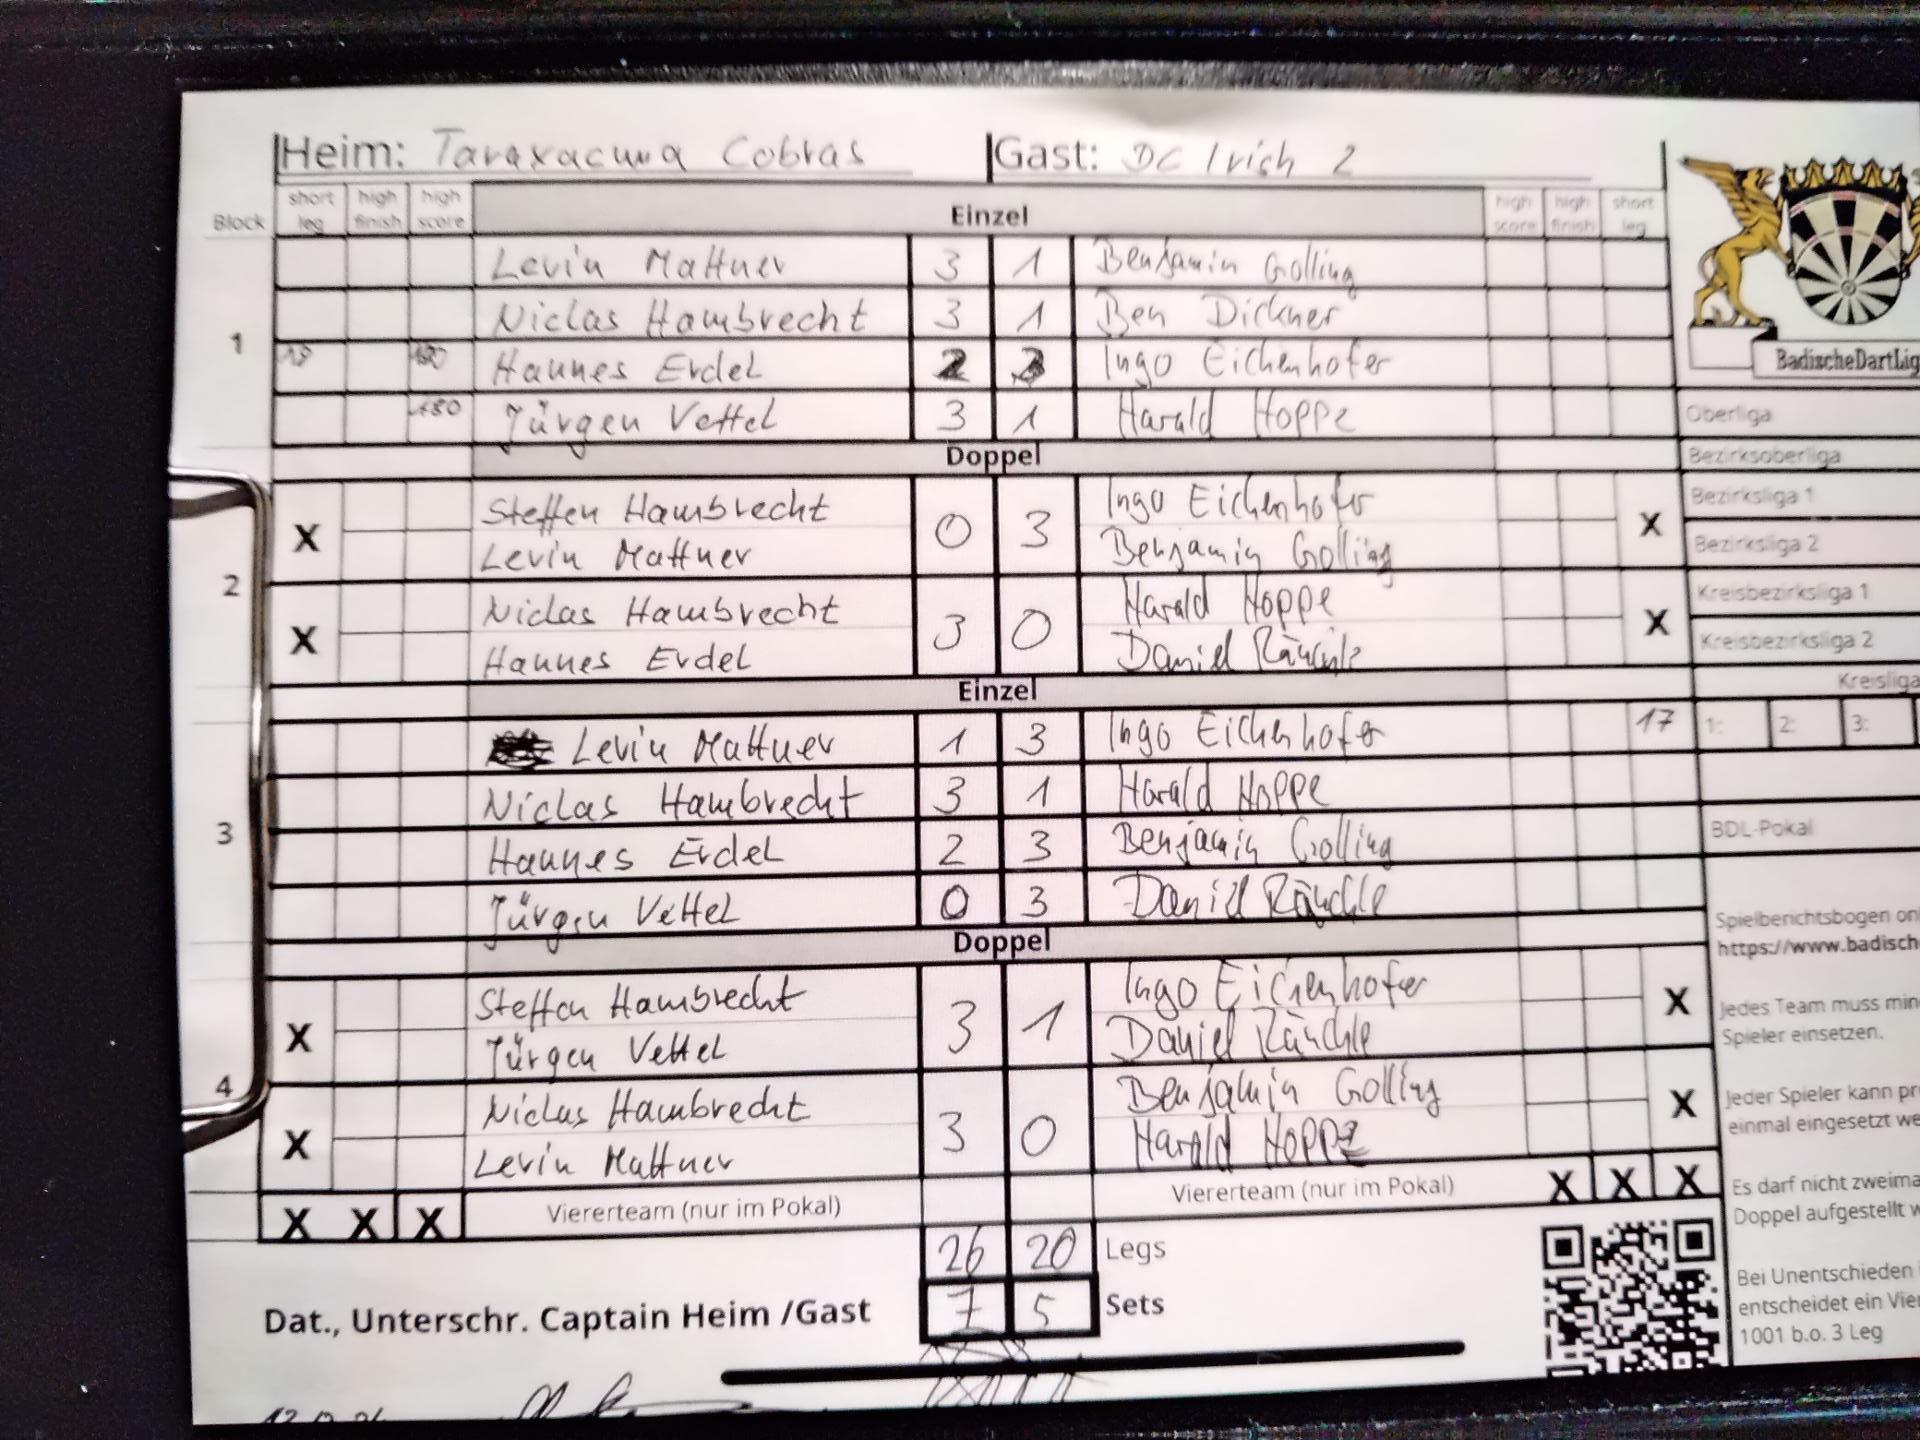 Heim: Taraxacuma Cobras Gast: DC Irish 2
Block short leg high finish high score Einzel high score high finish short leg
1
Levin Mattner 3 1 Benjamin Golling
Niclas Hambrecht 3 1 Ben Dickner
180 Hannes Erdel 2 3 Ingo Eichenhofer
180 Jürgen Vettel 3 1 Harald Hoppe
Doppel
2
X Steffen Hambrecht 0 3 Ingo Eichenhofer X
Levin Mattner Benjamin Golling
X Niclas Hambrecht 3 0 Harald Hoppe X
Hannes Erdel Daniel Räuchle
Einzel
3
Levin Mattner 1 3 Ingo Eichenhofer 17
Niclas Hambrecht 3 1 Harald Hoppe
Hannes Erdel 2 3 Benjamin Golling
Jürgen Vettel 0 3 Daniel Räuchle
Doppel
4
X Steffen Hambrecht 3 1 Ingo Eichenhofer X
Jürgen Vettel Daniel Räuchle
X Niclas Hambrecht 3 0 Benjamin Golling X
Levin Mattner Harald Hoppe
X X X Viererteam (nur im Pokal) Viererteam (nur im Pokal) X X X
26 20 Legs
Dat., Unterschr. Captain Heim /Gast 7 5 Sets
BadischeDartLig
Oberliga
Bezirksoberliga
Bezirksliga 1
Bezirksliga 2
Kreisbezirksliga 1
Kreisbezirksliga 2
Kreisliga
1: 2: 3:
BDL-Pokal
Spielberichtsbogen onl
https://www.badisch
Jedes Team muss min
Spieler einsetzen.
Jeder Spieler kann pr
einmal eingesetzt we
Es darf nicht zweima
Doppel aufgestellt w
Bei Unentschieden i
entscheidet ein Vier
1001 b.o. 3 Leg